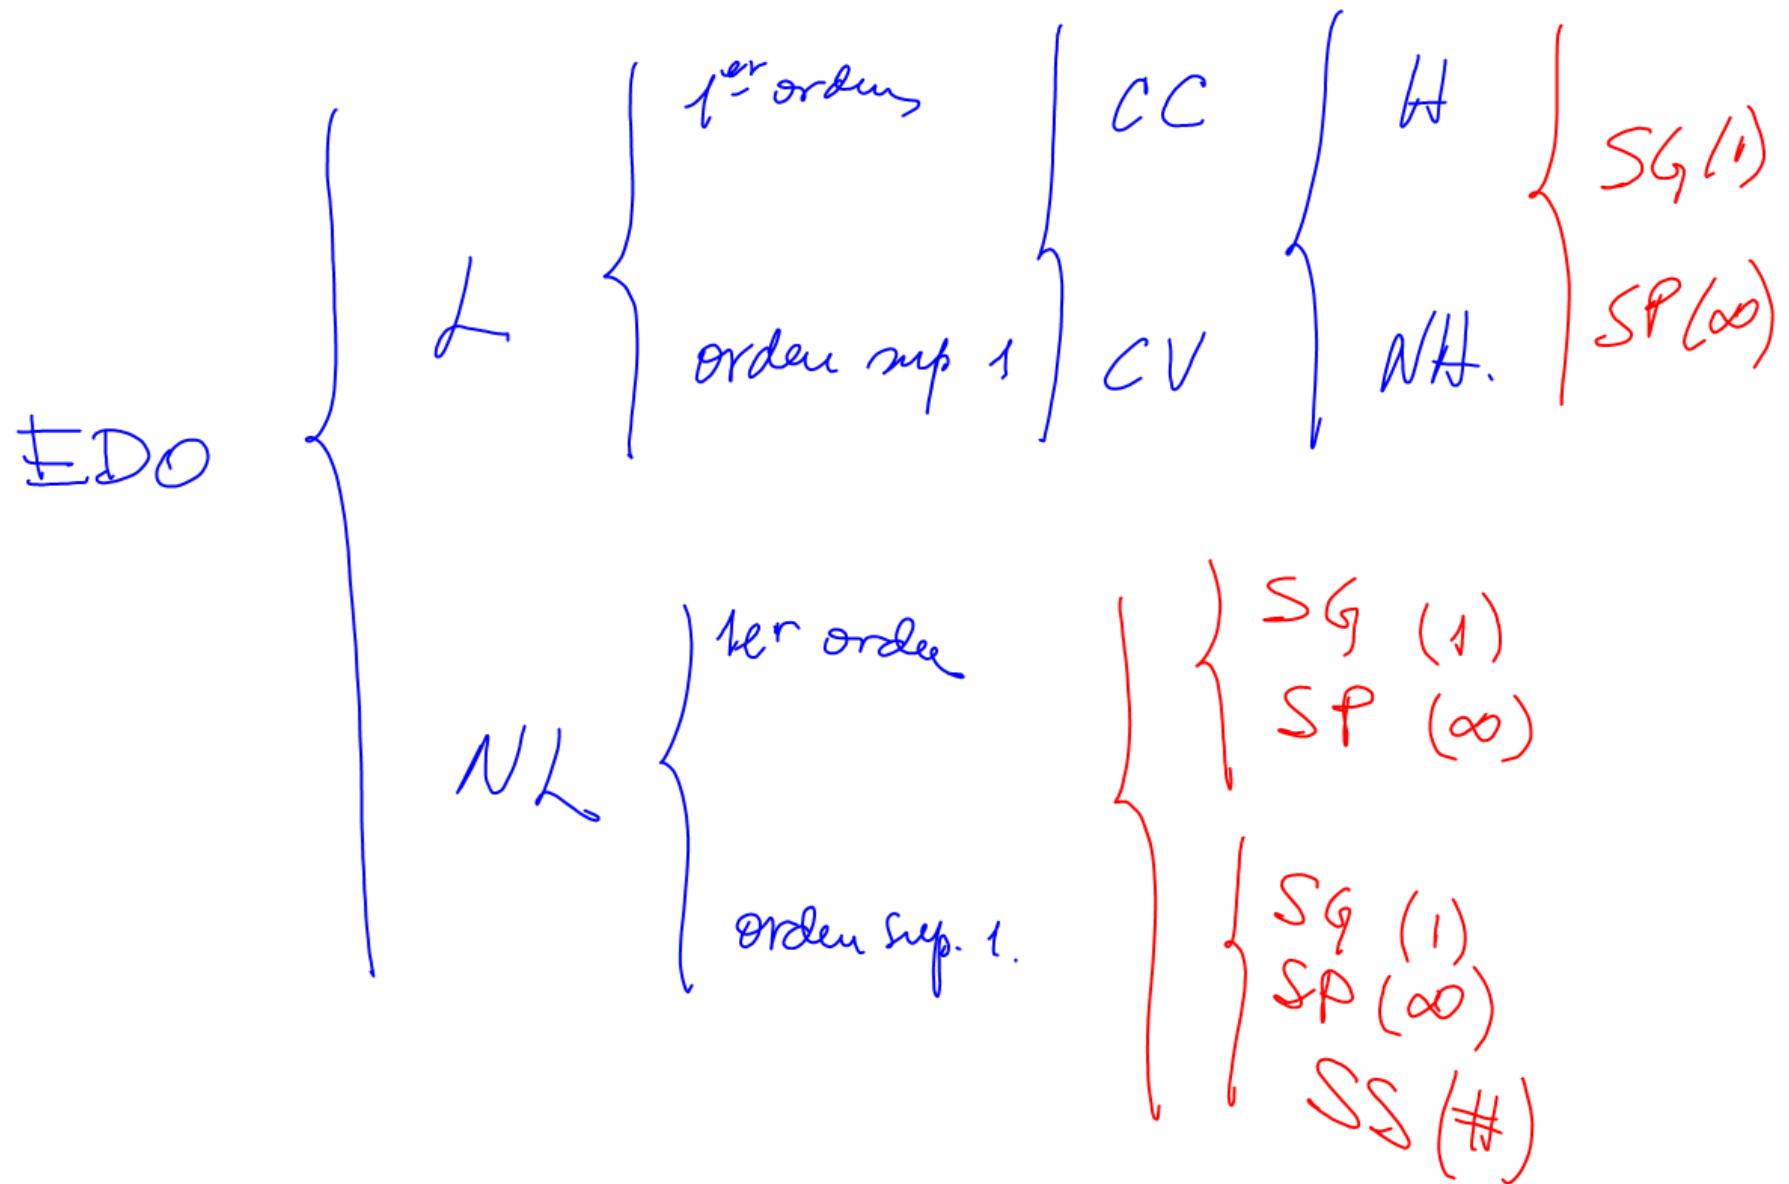 EDO
L
1er orden
orden sup 1
CC
CV
H
NH.
SG (1)
SP (∞)
NL
1er orden
orden sup. 1.
SG (1)
SP (∞)
SG (1)
SP (∞)
SS (#)